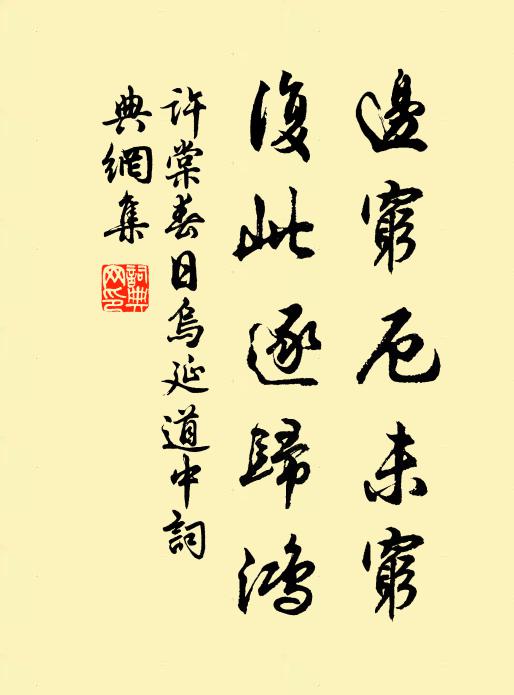 邊窮厄未窮
復此逐歸鴻
許棠春日烏延道中詞
典網集
詞典网印